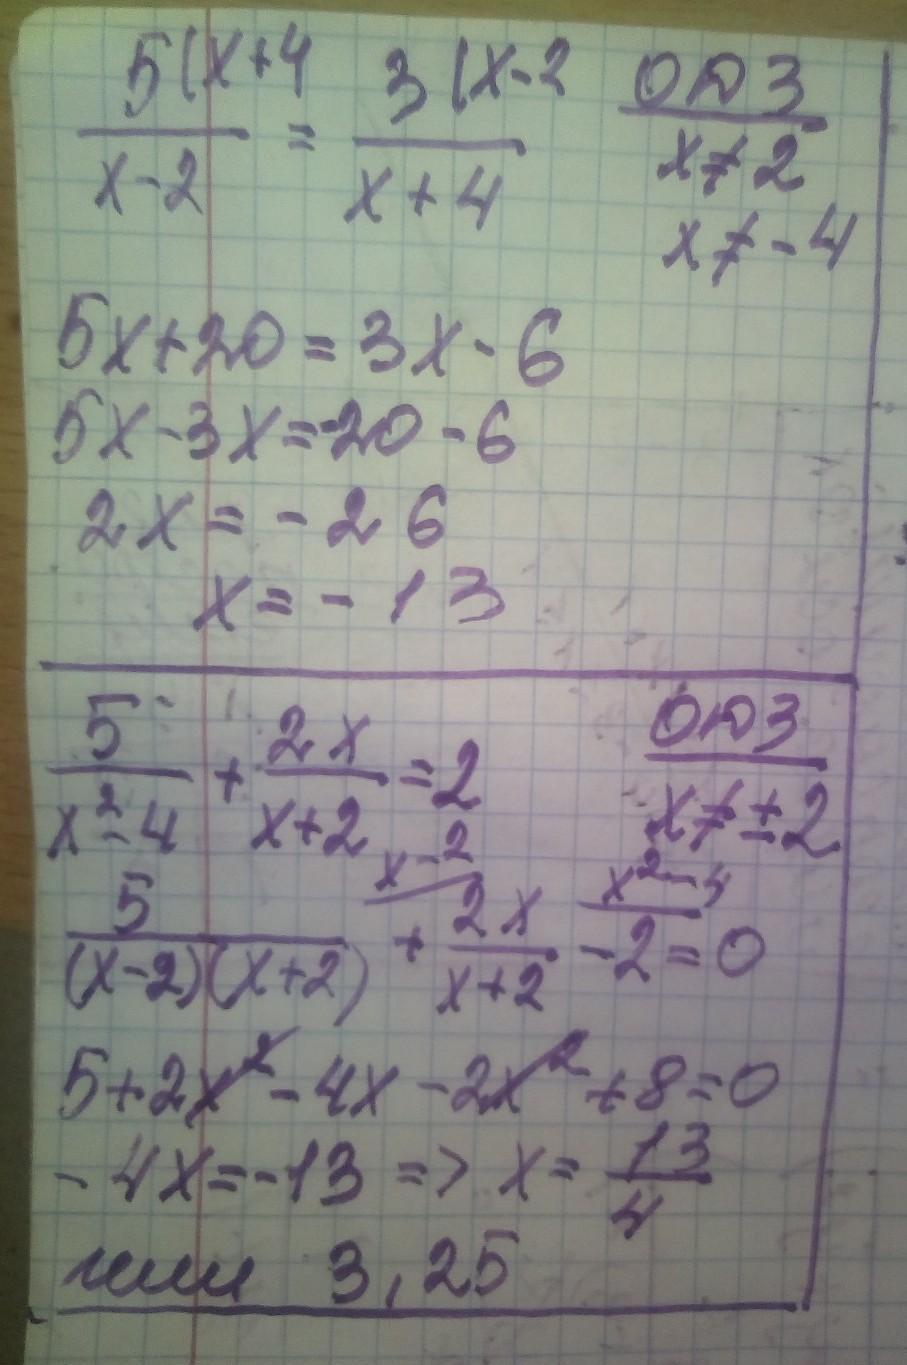 5(x+4 / x-2 = 3(x-2 / x+4
ОДЗ
x≠2
x≠-4
5x+20=3x-6
5x-3x=-20-6
2x=-26
x=-13
5/x²-4 + 2x/x+2 =2
ОДЗ
x≠±2
x-2 x²-4
5/(x-2)(x+2) + 2x/x+2 -2=0
5+2x²-4x-2x²+8=0
-4x=-13 => x=13/4
или 3,25